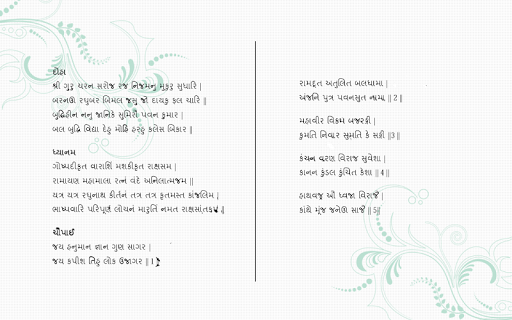 દોહા
શ્રી ગુરુ ચરન સરોજ રજ નિજમનુ મુકુરુ સુધારિ |
બરનઉ રઘુબર બિમલ જસુ જો દાયકુ ફલ ચારિ ||
બુદ્ધિહીન તનુ જાનિકે સુમિરૌ પવન કુમાર |
બલ બુદ્ધિ વિદ્યા દેહુ મોહિ હરહુ કલેસ બિકાર ||
ધ્યાનમ
ગોષ્પદીકૃત વારાશિં મશકીકૃત રાક્ષસમ |
રામાયણ મહામાલા રત્નં વંદે અનિલાત્મજમ ||
યત્ર યત્ર રઘુનાથ કીર્તનં તત્ર તત્ર કૃતમસ્ત કાંજલિમ |
ભાષ્પવારિ પરિપૂર્ણ લોચનં મારુતિં નમત રાક્ષસાંતકમ ||
ચૌપાઈ
જય હનુમાન જ્ઞાન ગુણ સાગર |
જય કપીશ તિહુ લોક ઉજાગર || 1 ||
રામદૂત અતુલિત બલધામા |
અંજનિ પુત્ર પવનસુત નામા || 2 ||
મહાવીર વિક્રમ બજરંગી |
કુમતિ નિવાર સુમતિ કે સંગી ||3 ||
કંચન વરણ વિરાજ સુવેશા |
કાનન કુંડલ કુંચિત કેશા || 4 ||
હાથવજ્ર ઔ ધ્વજા વિરાજૈ |
કાંથે મૂંજ જનેઊ સાજૈ || 5||